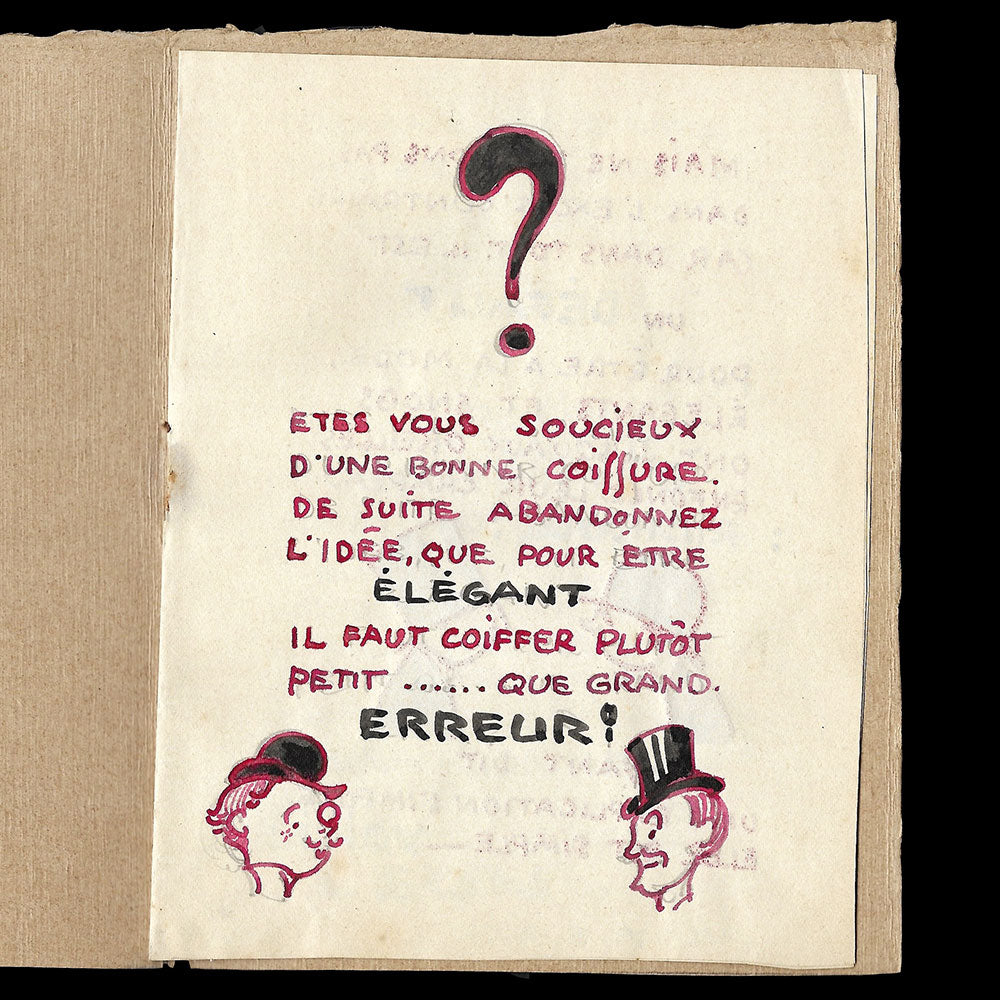 ?
ETES VOUS SOUCIEUX
D'UNE BONNE COIFFURE.
DE SUITE ABANDONNEZ
L'IDÉE, QUE POUR ÊTRE
ÉLÉGANT
IL FAUT COIFFER PLUTÔT
PETIT ...... QUE GRAND.
ERREUR!